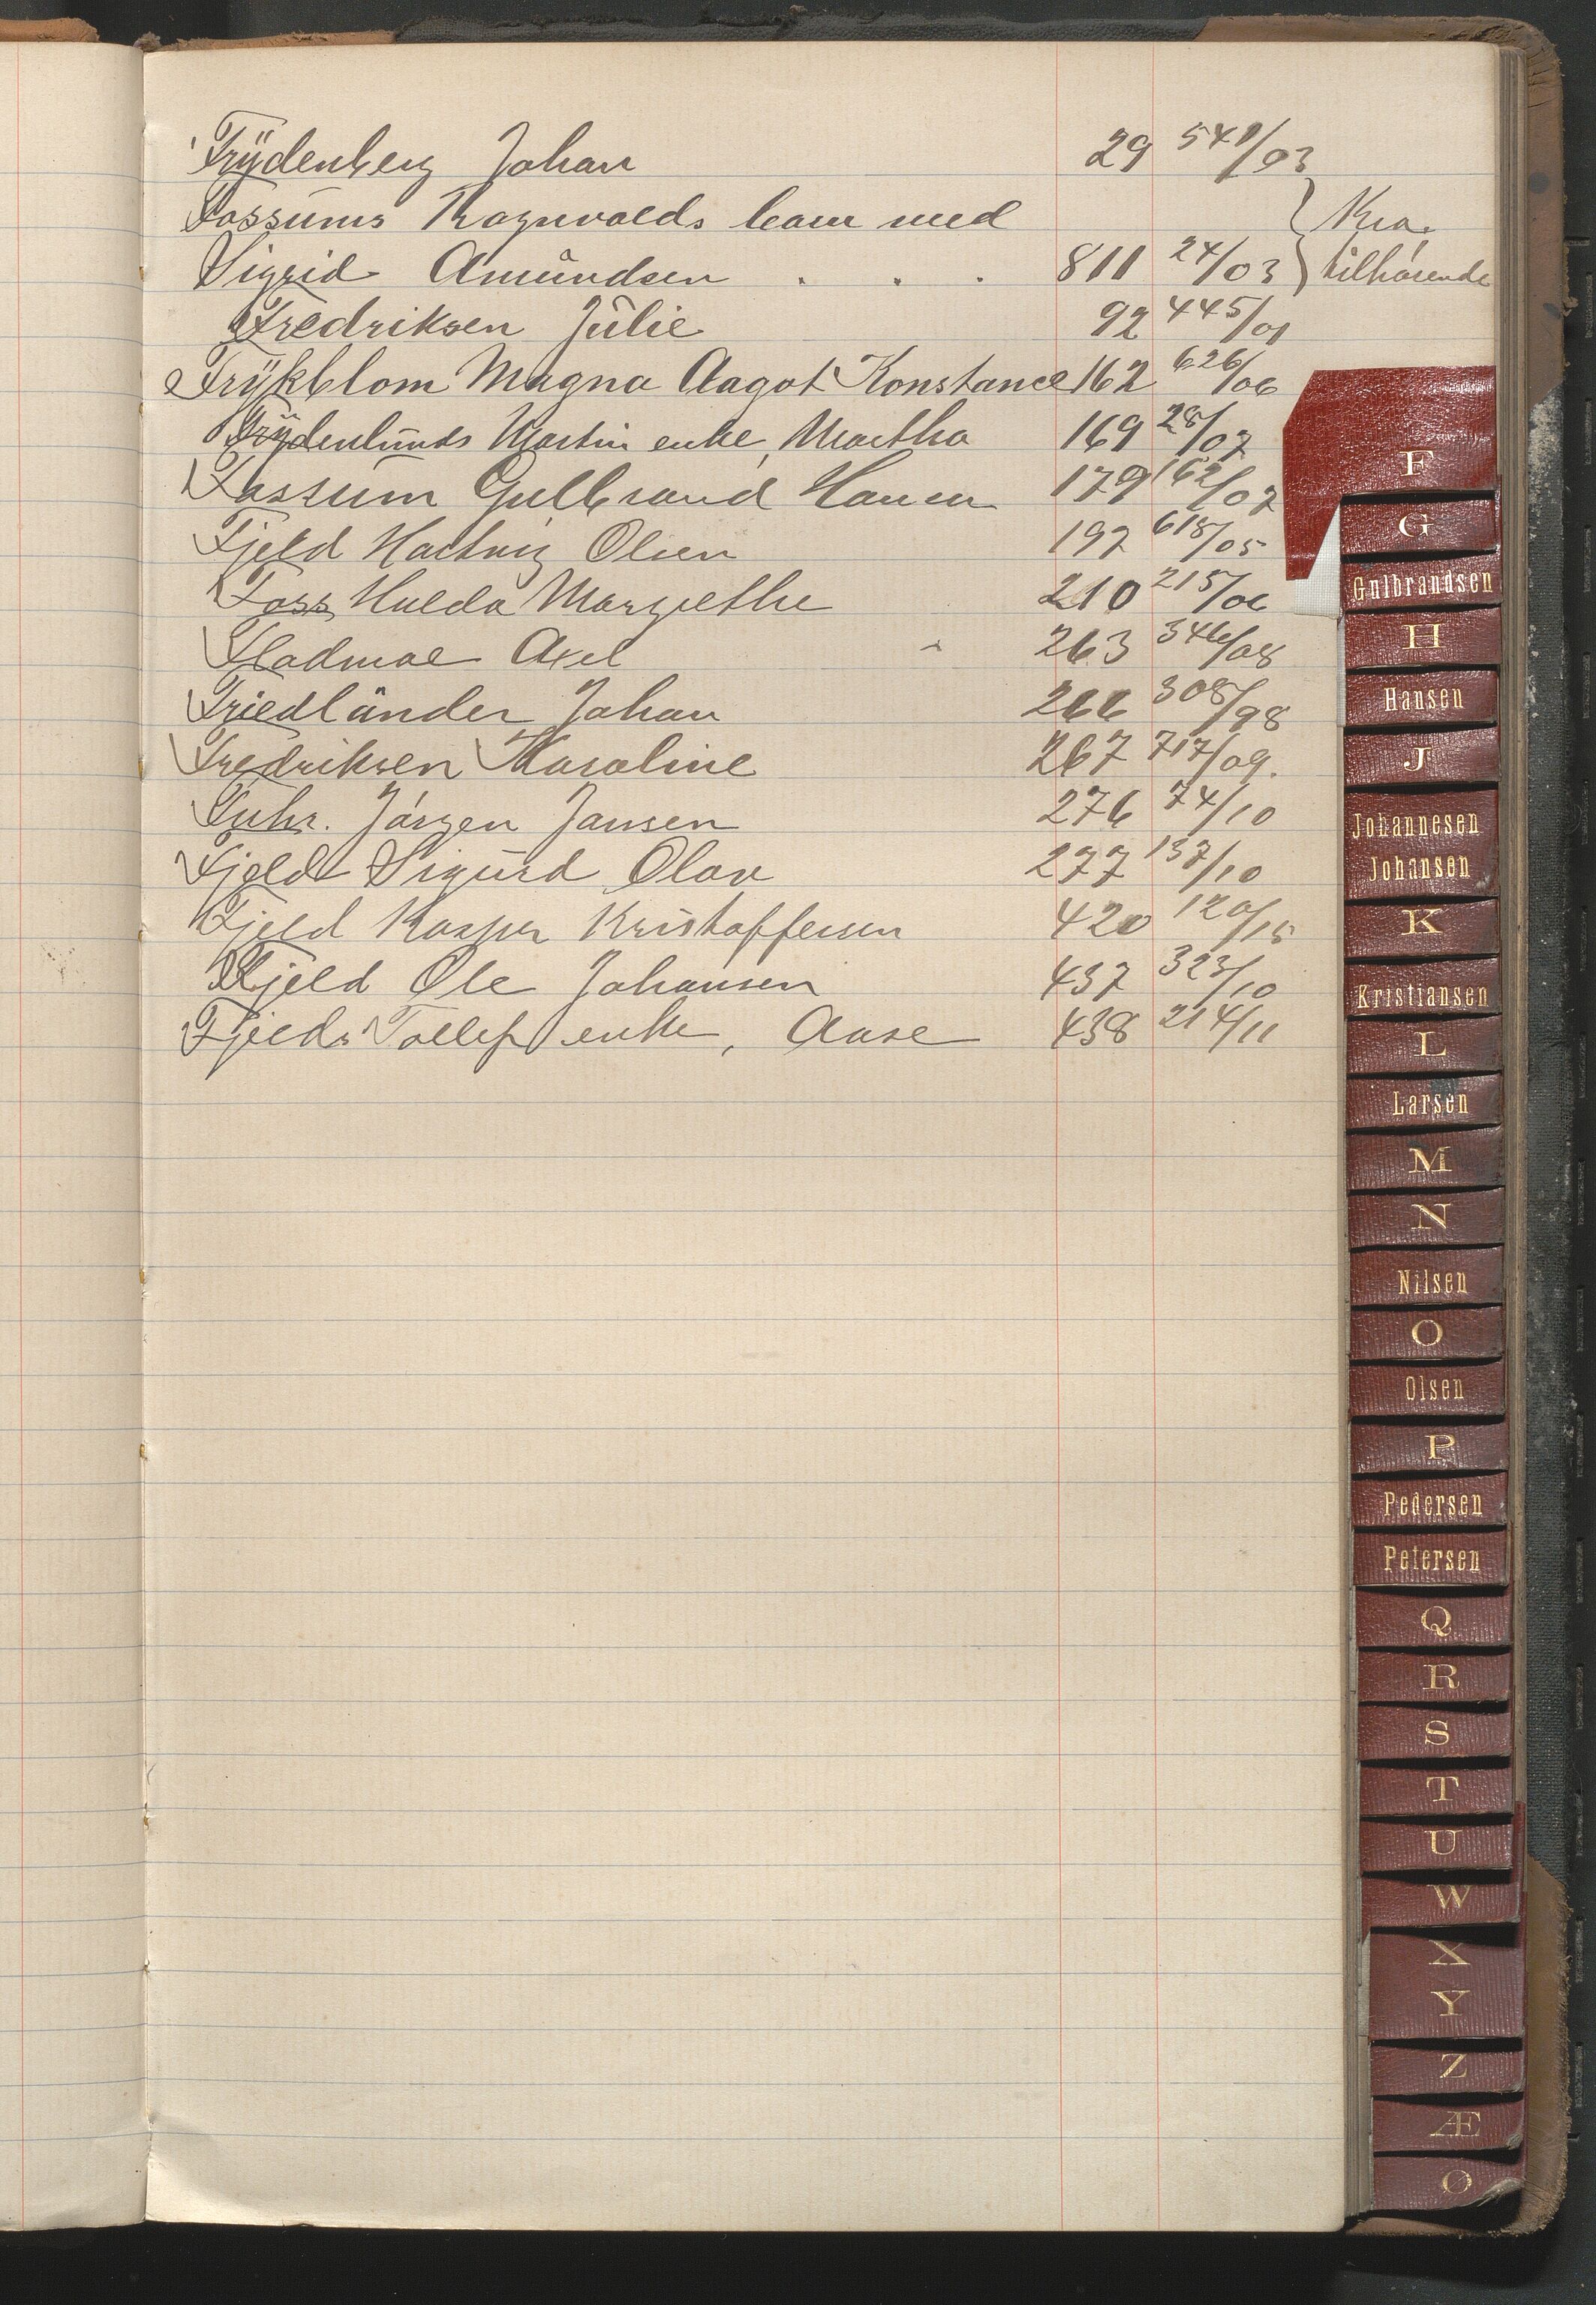 Frydenberg Johan 29 541/03
Fossums Ragnvalds barn med } Kra.
Sigrid Amundsen . . . 811 24/03 } tilhørende
Fredriksen Julie 92 445/01
Frykblom Magna Aagot Konstance 162 626/06
Frydenlunds Martin enke, Martha 169 28/07
Fossum Gulbrand Hansen 179 162/07
Fjeld Hartvig Olsen 192 618/05
Foss Hulda Margrethe 210 215/06
Fladmoe Axel 263 346/08
Friedländer Johan 266 308/98
Fredriksen Karoline 267 717/09.
Fuhr. Jørgen Jansen 276 74/10
Fjeld Sigurd Olav 277 137/10
Fjeld Kasper Kristoffersen 420 120/15
Fjeld Ole Johansen 437 323/10
Fjelds Tollef enke, Aase 438 214/11
F
G
Gulbrandsen
H
Hansen
J
Johannesen
Johansen
K
Kristiansen
L
Larsen
M
N
Nilsen
O
Olsen
P
Pedersen
Petersen
Q
R
S
T
U
W
X
Y
Z
Æ
Ø